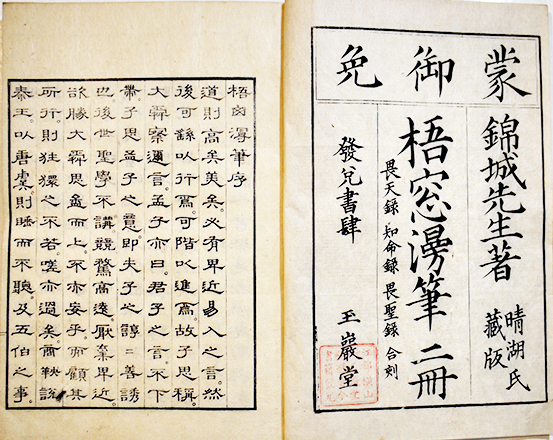 蒙御免
錦城先生著
晴湖氏
藏版
梧窓漫筆 二冊
畏天錄 知命錄 畏聖錄 合刻
發兌書肆 玉巖堂
梧窗漫筆序
道則高矣美矣。必有卑近易入之言。然
後可繇以行焉。可階以進焉。故子思稱
大舜察邇言。孟子亦曰。君子之言不下
帶。子思孟子之意。即夫子之諄〻善誘
也。後世聖學不講。競騖高遠。厭棄卑近。
欲勝大舜思孟而上。不亦妄乎。而顧其
所行。則狂獧之不若。嗟亦過矣。商鞅說
秦王以唐虞。則睡而不聽。及五伯之事。